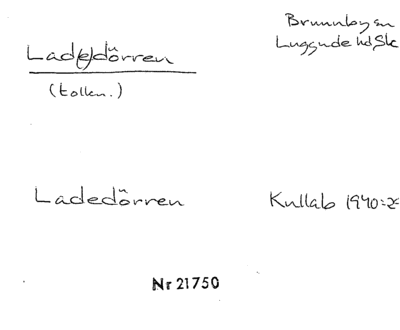 Brunnby sn
Luggude hd Sk
Lad(e)dörren
(tolkn.)
Ladedörren
Kullab 1940:2
Nr 21750